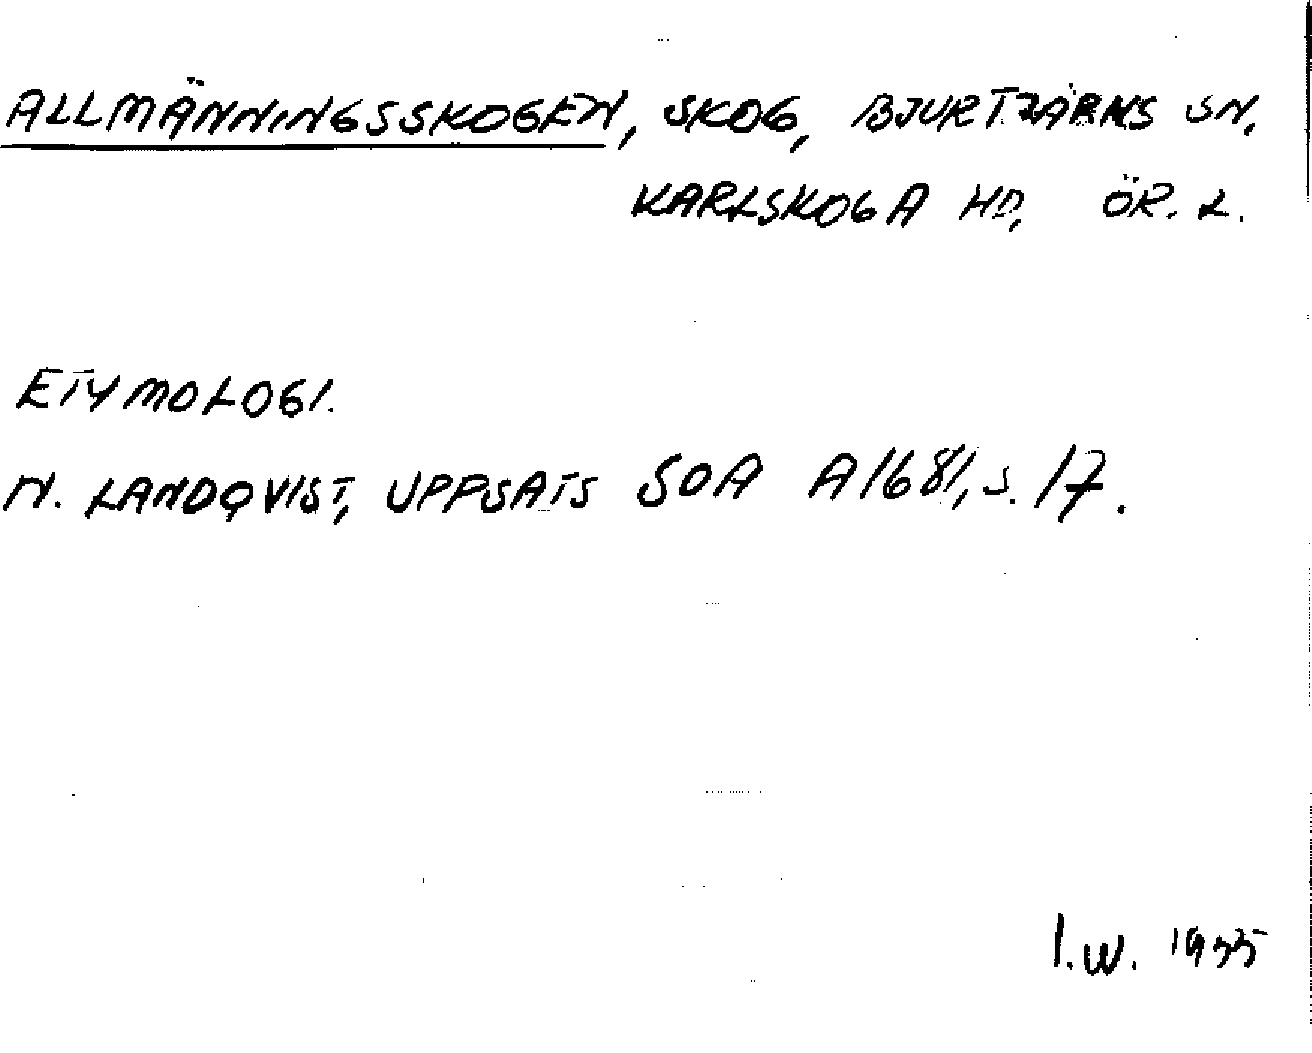 ALLMÄNNINGSSKOGEN, SKOG, BJURTJÄRNS SN,
KARLSKOGA HD, ÖR. L.
ETYMOLOGI.
N. LANDQVIST, UPPSATS SOA A1681, S. 17.
I.W. 1955